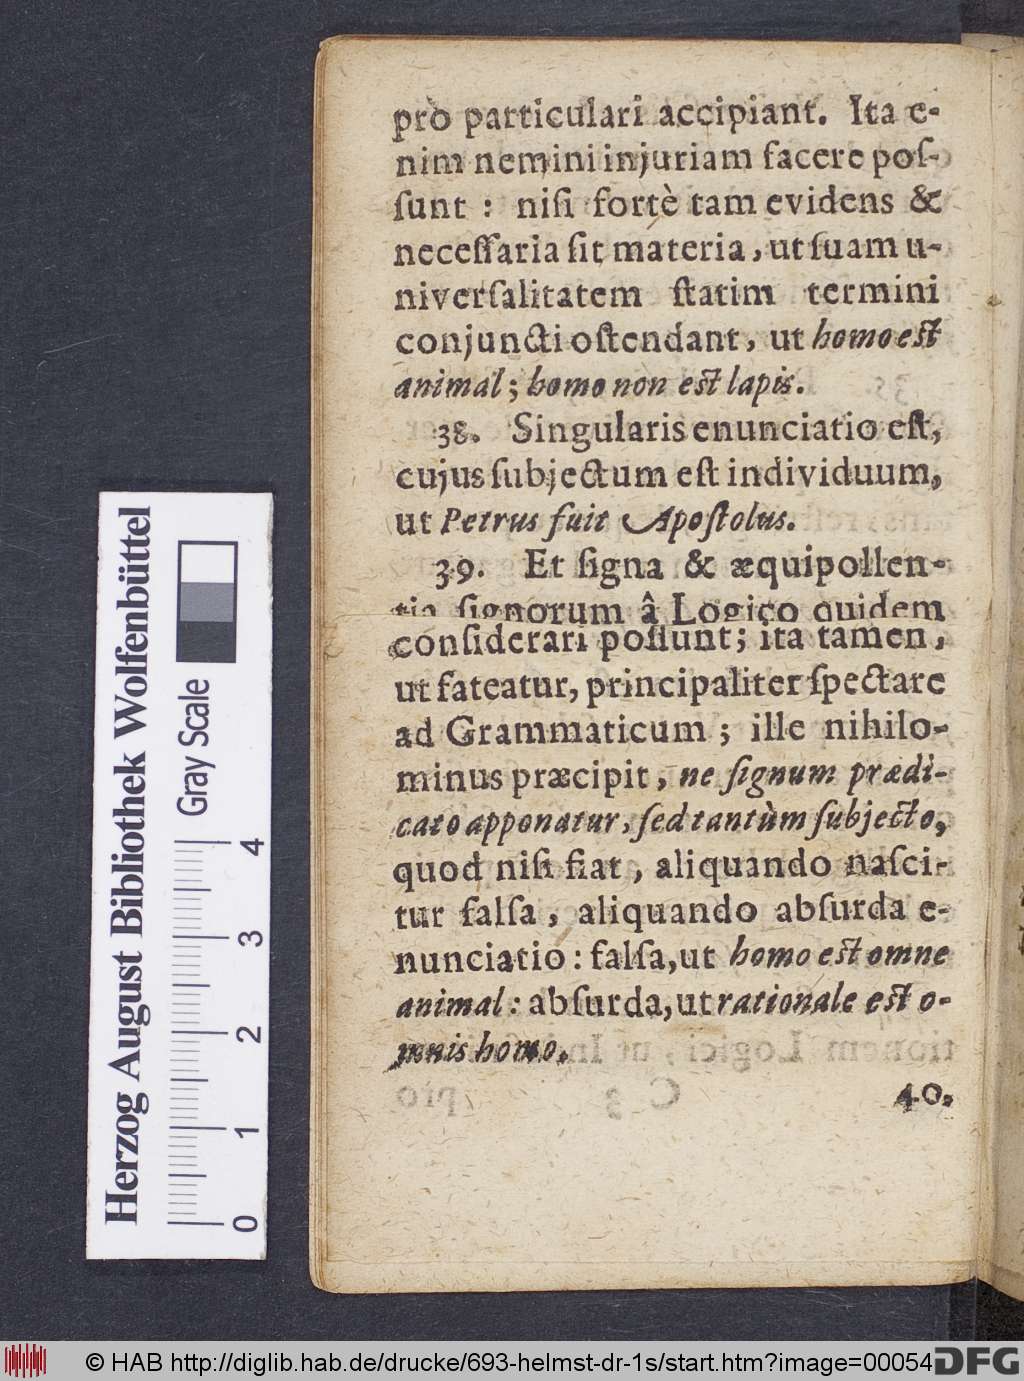 prò particulari accipiant. Ita e-
nim nemini injuriam facere poſ-
ſunt : niſi fortè tam evidens &
neceſſaria ſit materia, ut ſuam u-
niverſalitatem ſtatim termini
conjuncti oſtendant, ut homo eſt
animal; homo non eſt lapis.
38. Singularis enunciatio eſt,
cujus ſubjectum eſt individuum,
ut Petrus fuit Apoſtolus.
39. Et ſigna & æquipollen-
tia ſignorum â Logico quidem
conſiderari poſſunt; ita tamen,
ut fateatur, principaliter ſpectare
ad Grammaticum ; ille nihilo-
minus præcipit, ne ſignum prædi-
cato apponatur, ſed tantùm ſubjecto,
quod niſi fiat, aliquando naſci-
tur falſa, aliquando abſurda e-
nunciatio : falſa, ut homo eſt omne
animal : abſurda, ut rationale eſt o-
mnis homo.
40.
Herzog August Bibliothek Wolfenbüttel
Gray Scale
0 1 2 3 4
© HAB http://diglib.hab.de/drucke/693-helmst-dr-1s/start.htm?image=00054
DFG